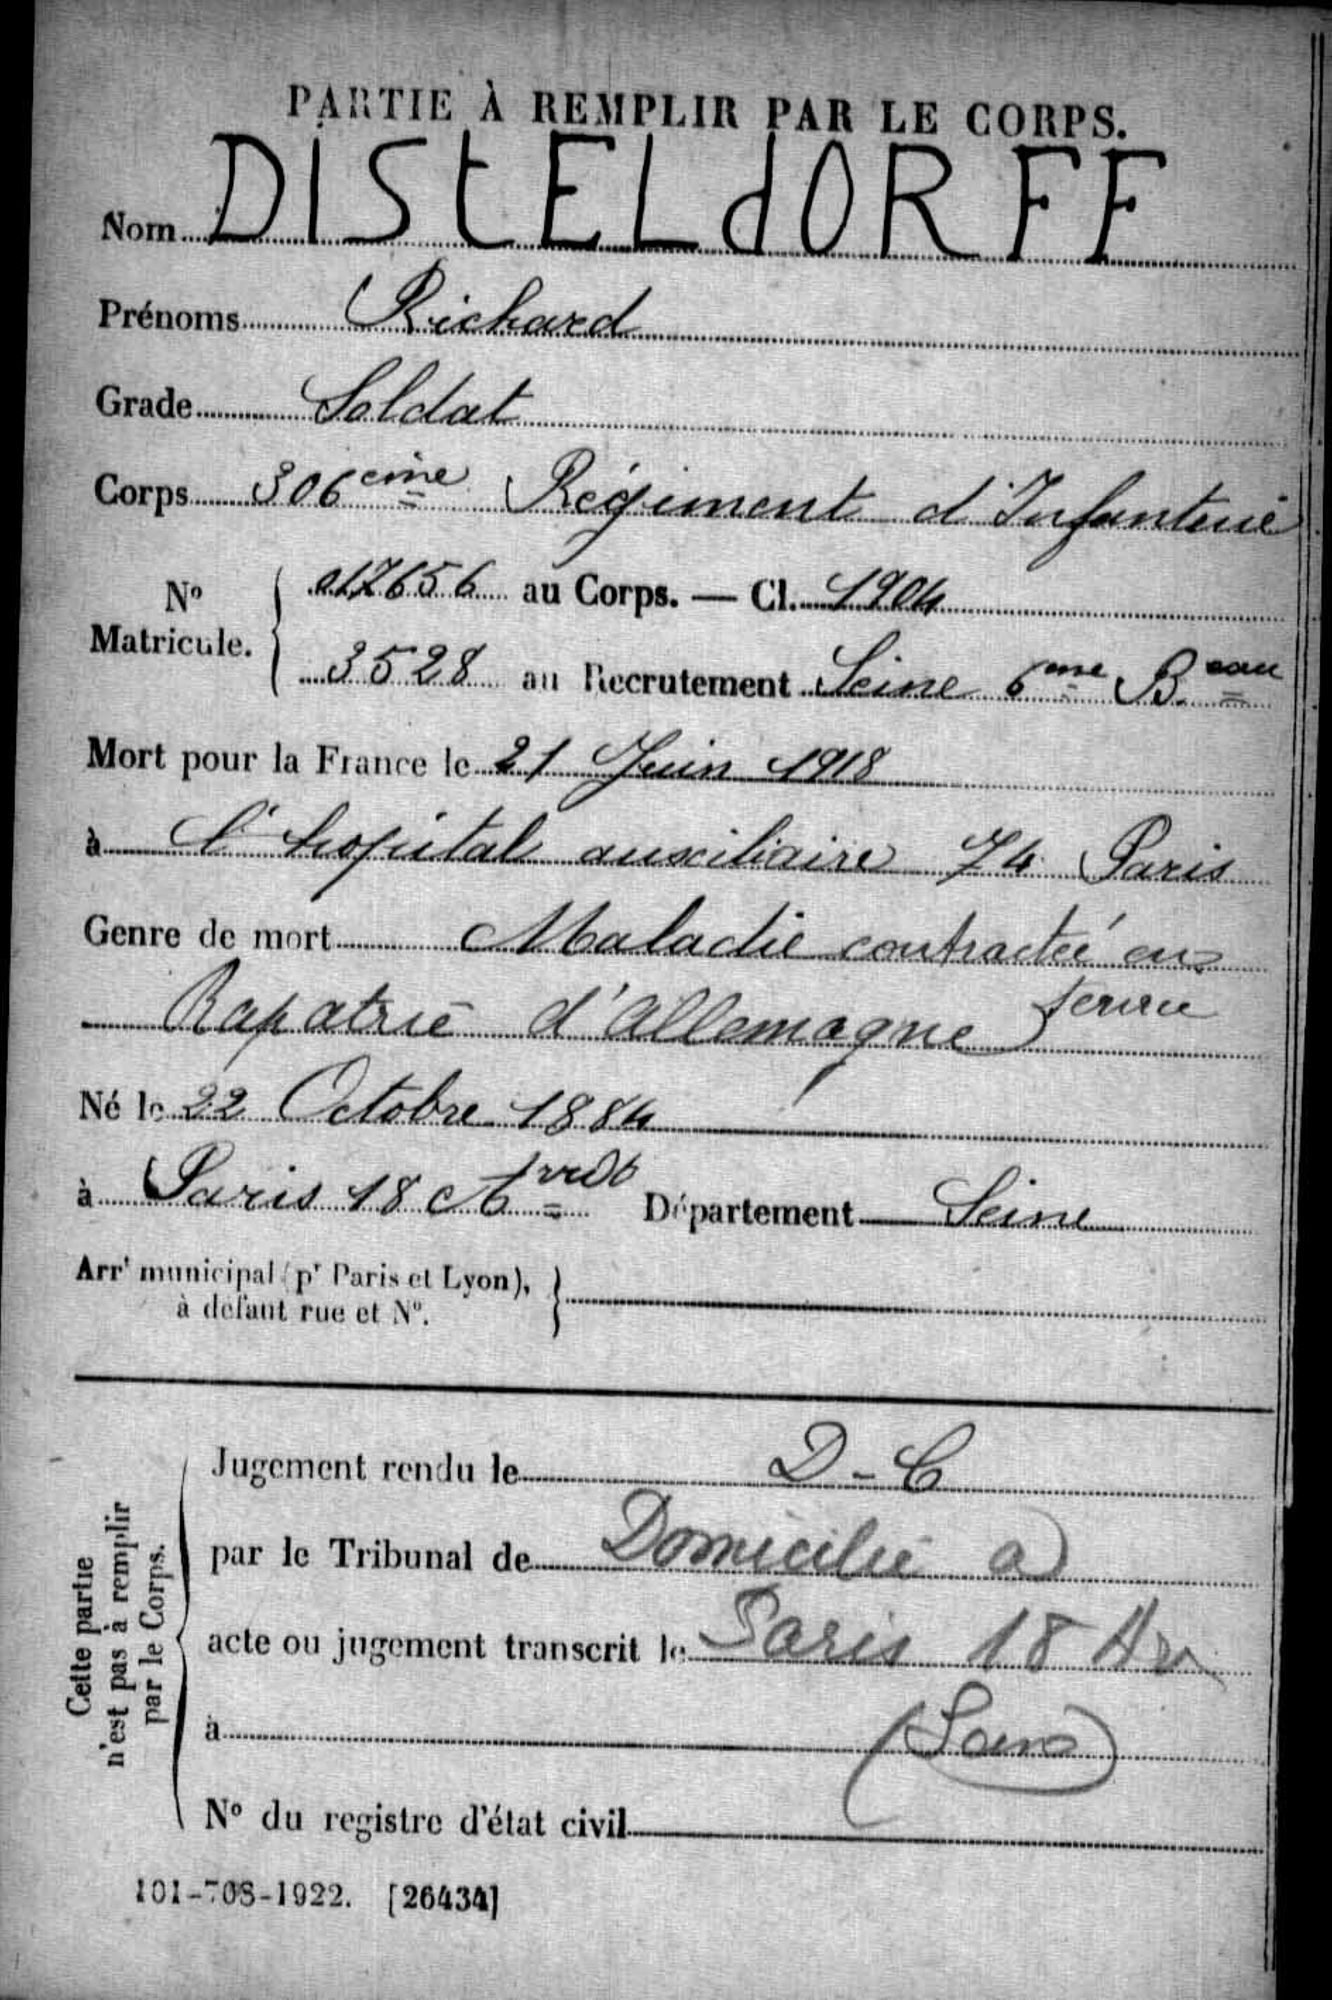 PARTIE À REMPLIR PAR LE CORPS.
Nom DIStELdORFF
Prénoms Richard
Grade Soldat
Corps 306ème Régiment d'Infanterie
No Matricule. { 017656 au Corps. — Cl. 1904
3528 au Recrutement Seine 6ème Beau
Mort pour la France le 21 Juin 1918
à l'hopital auxiliaire 74 Paris
Genre de mort Maladie contractée en
service
Rapatrié d'Allemagne
Né le 22 Octobre 1884
à Paris 18e Arrdt Département Seine
Arrt municipal (pr Paris et Lyon), }
à défaut rue et No.
Cette partie
n'est pas à remplir
par le Corps.
Jugement rendu le D-C
par le Tribunal de Domicilié a
acte ou jugement transcrit le Paris 18 Arr
à
No du registre d'état civil
101-708-1922. [26434]